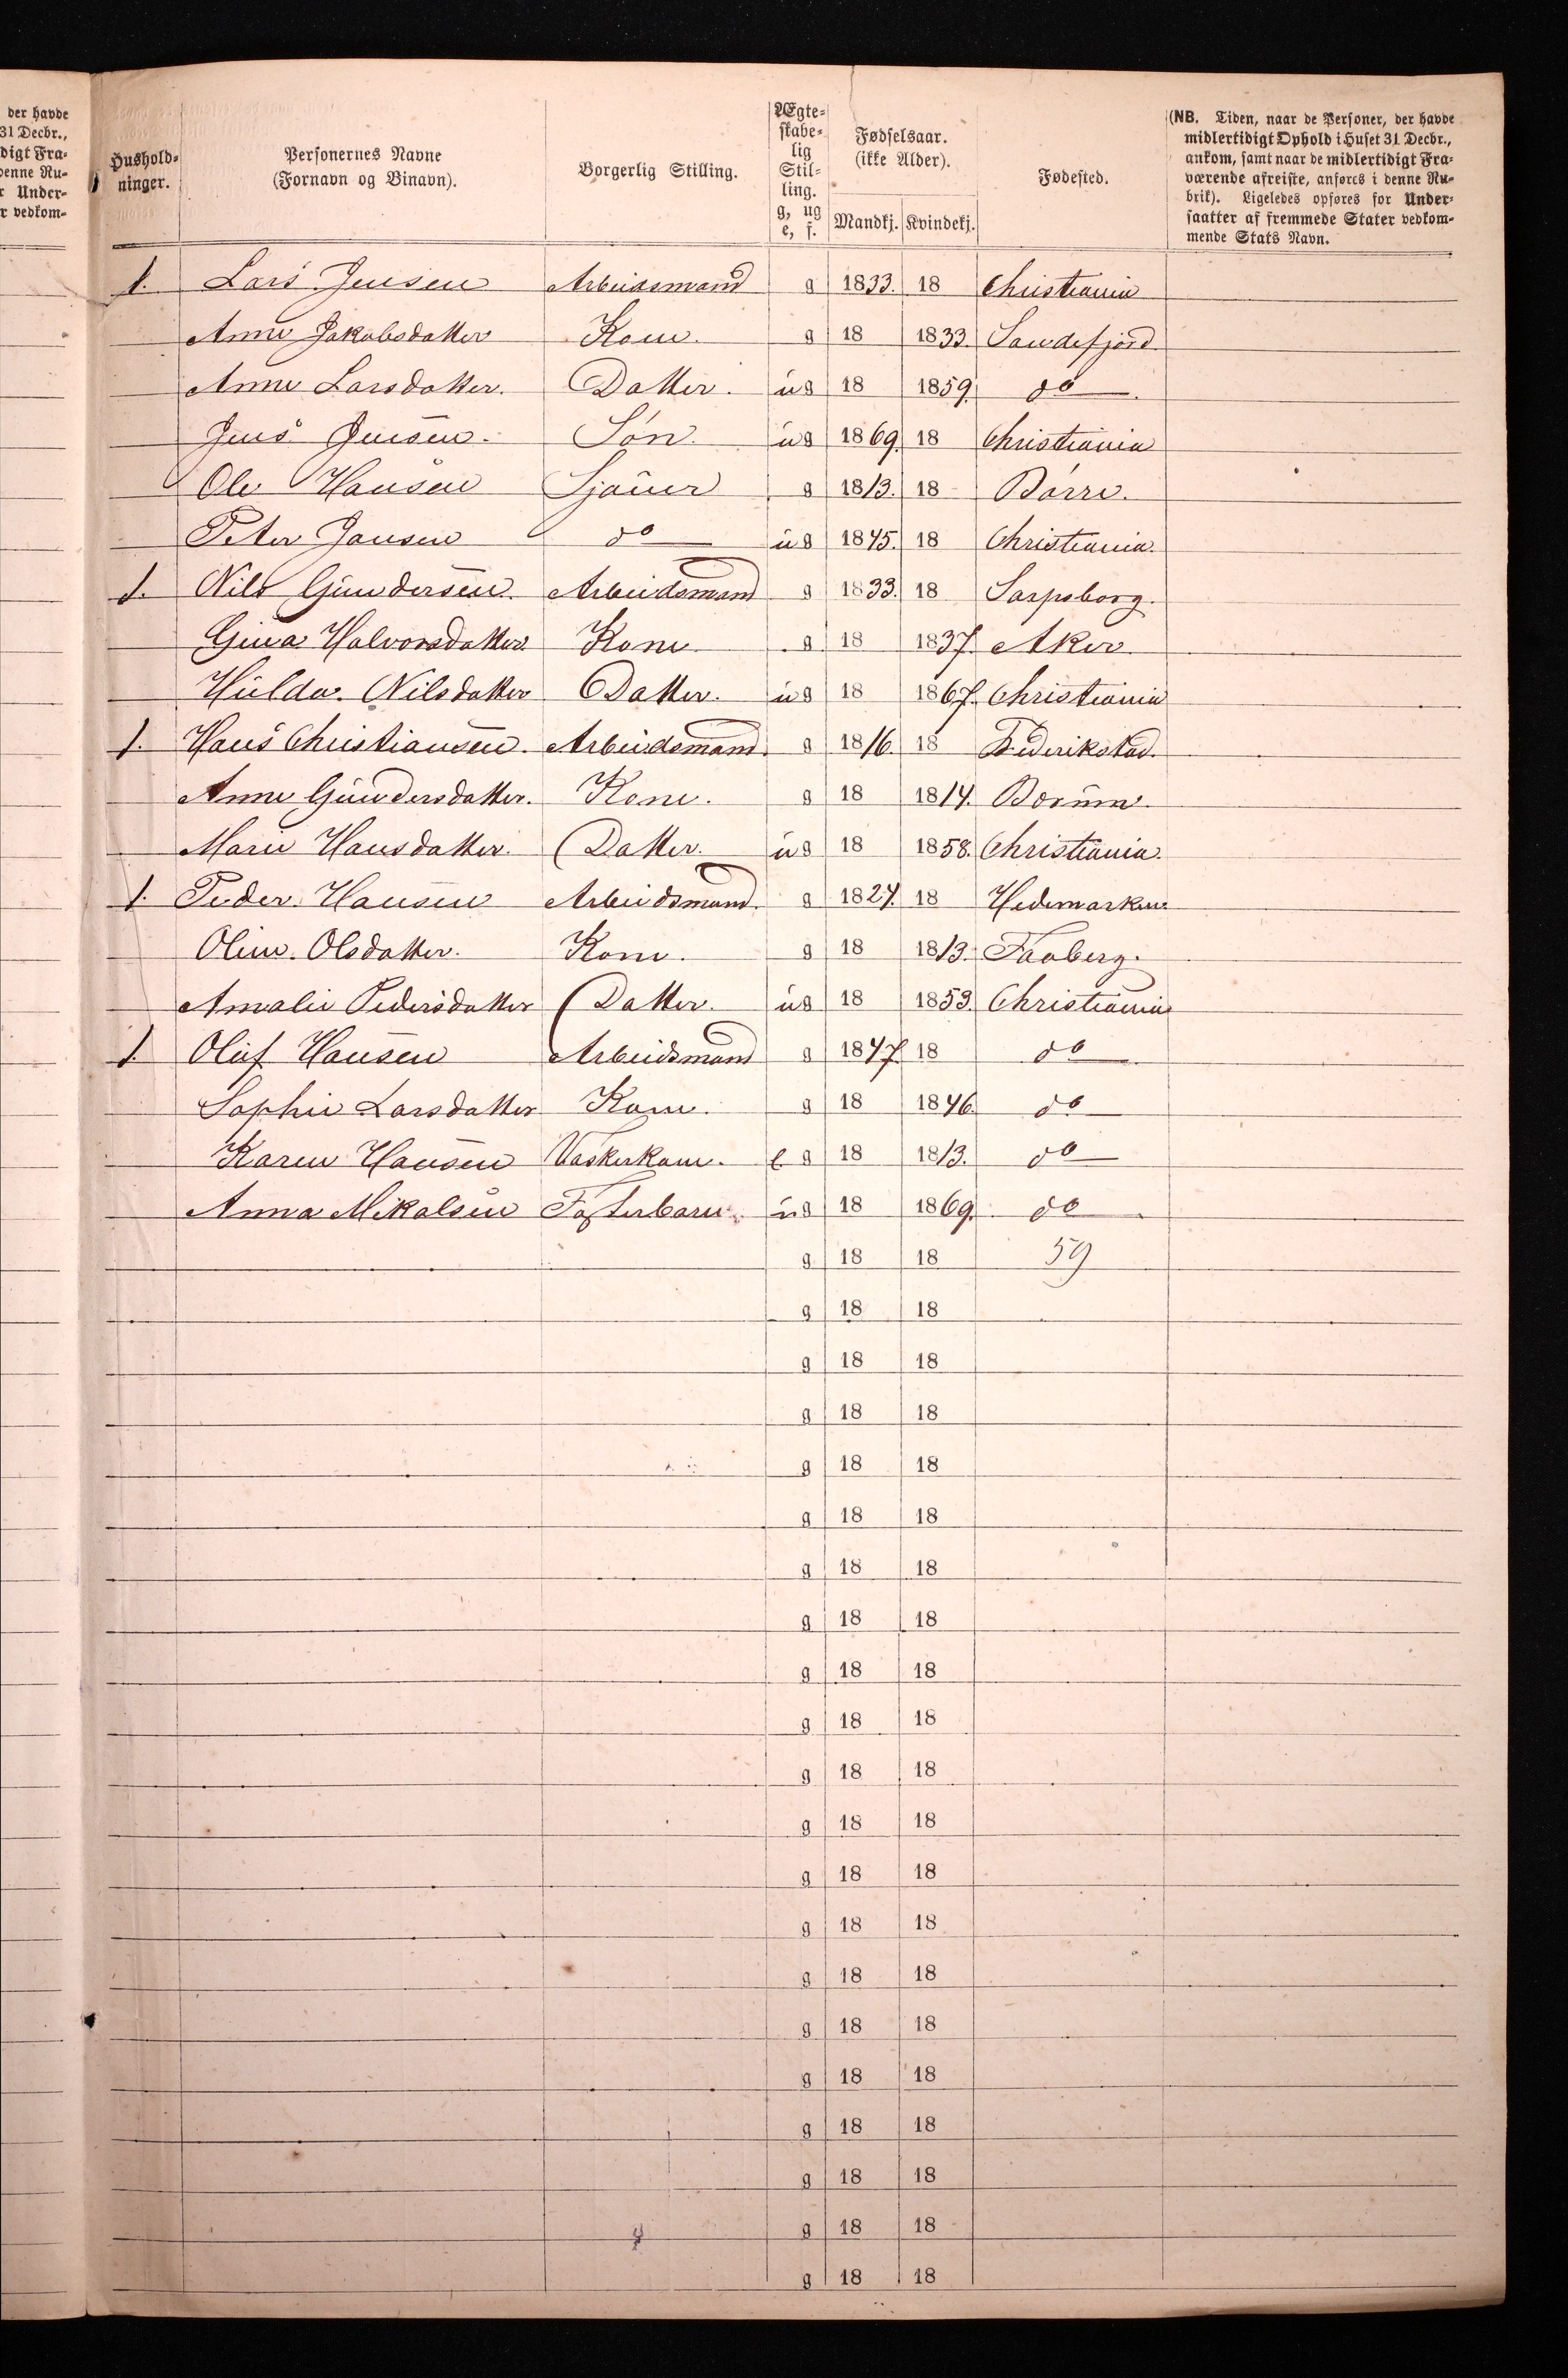 der havde
31 Decbr.,
digt Fra-
denne Ru-
r Under-
r vedkom-
Hushold-
ninger.
Personernes Navne
(Fornavn og Binavn).
Borgerlig Stilling.
Ægte-
skabe-
lig
Stil-
ling.
g, ug
e, f.
Fødselsaar.
(ikke Alder).
Mandkj. Kvindekj.
Fødested.
(NB. Tiden, naar de Personer, der havde
midlertidigt Ophold i Huset 31 Decbr.,
ankom, samt naar de midlertidigt Fra-
værende afreiste, anføres i denne Ru-
brik). Ligeledes opføres for Under-
saatter af fremmede Stater vedkom-
mende Stats Navn.
1. Lars Jensen Arbeidsmand g 1833. 18 Christiania
Anne Jakobsdatter Kone. g 18 1833. Sandefjord
Anne Larsdatter. Datter. ug 18 1859. do
Jens Jensen. Søn. ug 1869. 18 Christiania
Ole Hansen Sjauer g 1813. 18 Borre.
Peter Jansen do ug 1845. 18 Christiania.
1. Nils Gundersen. Arbeidsmand g 1833. 18 Sarpsborg.
Gina Halvorsdatter. Kone. g 18 1837. Aker.
Hulda. Nilsdatter Datter. ug 18 1867. Christiania
1. Hans Christiansen. Arbeidsmand. g 1816. 18 Frederikstad.
Anne Gundersdatter. Kone. g 18 1814. Bærum.
Marie Hansdatter. Datter. ug 18 1858. Christiania.
1. Peder. Hansen Arbeidsmand. g 1824. 18 Hedemarken.
Oline. Olsdatter. Kone. g 18 1813. Faaberg.
Amalie Pedersdatter Datter. ug 18 1853. Christiania
1. Oluf Hansen Arbeidsmand g 1847. 18 do
Sophie Larsdatter Kone. g 18 1846. do
Karen Hansen Vaskerkone. e g 18 1813. do
Anna Mikalsen Fosterbarn. ug 18 1869. do
g 18 18 59
g 18 18
g 18 18
g 18 18
g 18 18
g 18 18
g 18 18
g 18 18
g 18 18
g 18 18
g 18 18
g 18 18
g 18 18
g 18 18
g 18 18
g 18 18
g 18 18
g 18 18
g 18 18
g 18 18
g 18 18